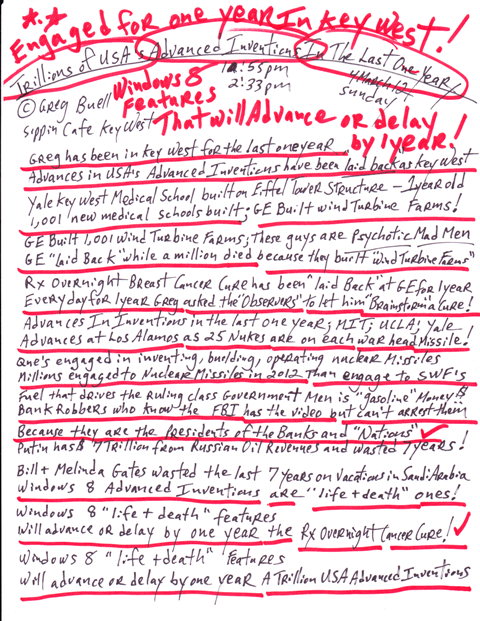 ** Engaged for one year In Key West!
Trillions of USA's Advanced Inventions In The Last One Year,
© Greg Buell
Windows 8
12:55pm
2:33pm
4 March 12
Sunday
Features
Sippin Cafe Key West
That will Advance or delay
by 1 year!
Greg has been in key West for the last one year
Advances in USA's Advanced Inventions have been "laid back" as Key West
Yale Key West Medical School built on Eiffel Tower Structure - 1 year old
1,001 new medical schools built; GE Built wind Turbine Farms!
GE Built 1,001 Wind Turbine Farms; These guys are Psychotic Mad Men
GE "laid Back" while a million died because they built "Wind Turbine Farms"
Rx Overnight Breast Cancer Cure has been "laid Back" at GE for 1 year
Every day for 1 year Greg asked the "Observers" to let him "Brainstorm" a Cure!
Advances In Inventions in the last one year; MIT; UCLA; Yale
Advances at Los Alamos as 25 Nukes are on each war head Missile!
One's engaged in inventing, building, operating nuclear Missiles
Millions engaged to Nuclear Missiles in 2012 Than engage to SWF's
Fuel that drives the Ruling class Government Men is "gasoline" Money!!
Bank Robbers who know the FBI has the video but can't arrest them
Because they are the Presidents of the Banks and "Nations"
Putin has $7 Trillion from Russian Oil Revenues and wasted 7 years!
Bill + Melinda Gates wasted the last 7 years on vacations in Saudi Arabia
Windows 8 Advanced Inventions are "life + death" ones!
Windows 8 "life + death" features
will advance or delay by one year the Rx Overnight Cancer Cure!
Windows 8 "life + death" features
Will advance or delay by one year A Trillion USA Advanced Inventions